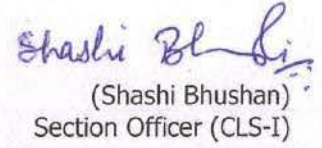 Shashi Bh
(Shashi Bhushan)
Section Officer (CLS-I)